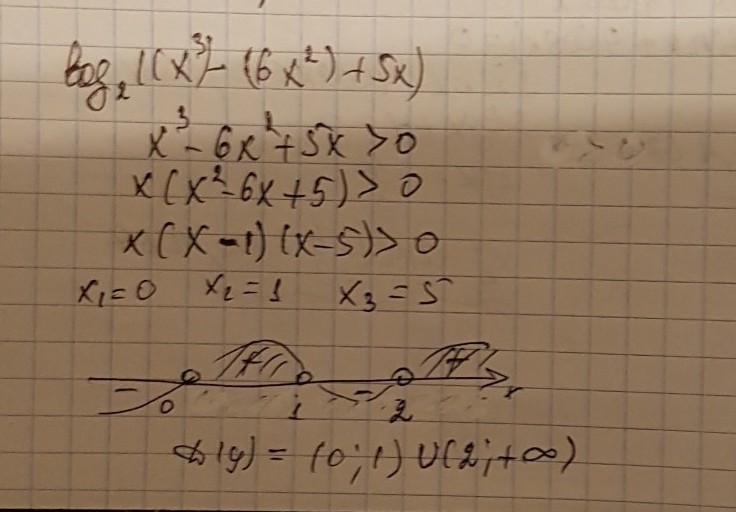 log₂((x³)-(6x²)+5x)
x³-6x²+5x>0
x(x²-6x+5)>0
x(x-1)(x-5)>0
x₁=0 x₂=1 x₃=5
- + - + x
0 1 2
D(y)=(0;1)∪(2;+∞)